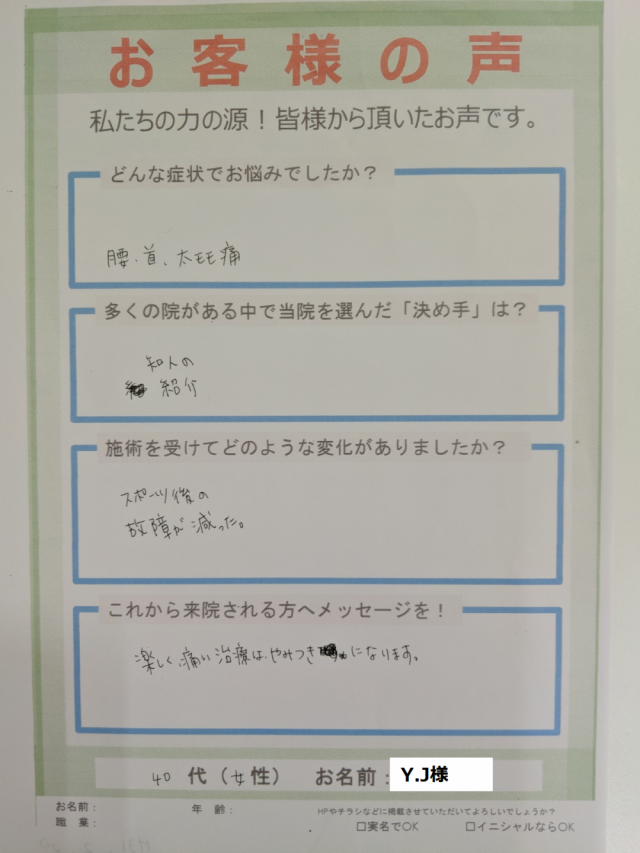 お客様の声
私たちの力の源！皆様から頂いたお声です。
どんな症状でお悩みでしたか？
腰、首、太モモ痛
多くの院がある中で当院を選んだ「決め手」は？
知人の
紹介
施術を受けてどのような変化がありましたか？
スポーツ後の
故障が減った。
これから来院される方へメッセージを！
楽しく、痛い治療は、やみつきになります。
40代（女性） お名前：Y.J様
お名前： 年齢： HPやチラシなどに掲載させていただいてよろしいでしょうか？
職業： □実名でOK □イニシャルならOK